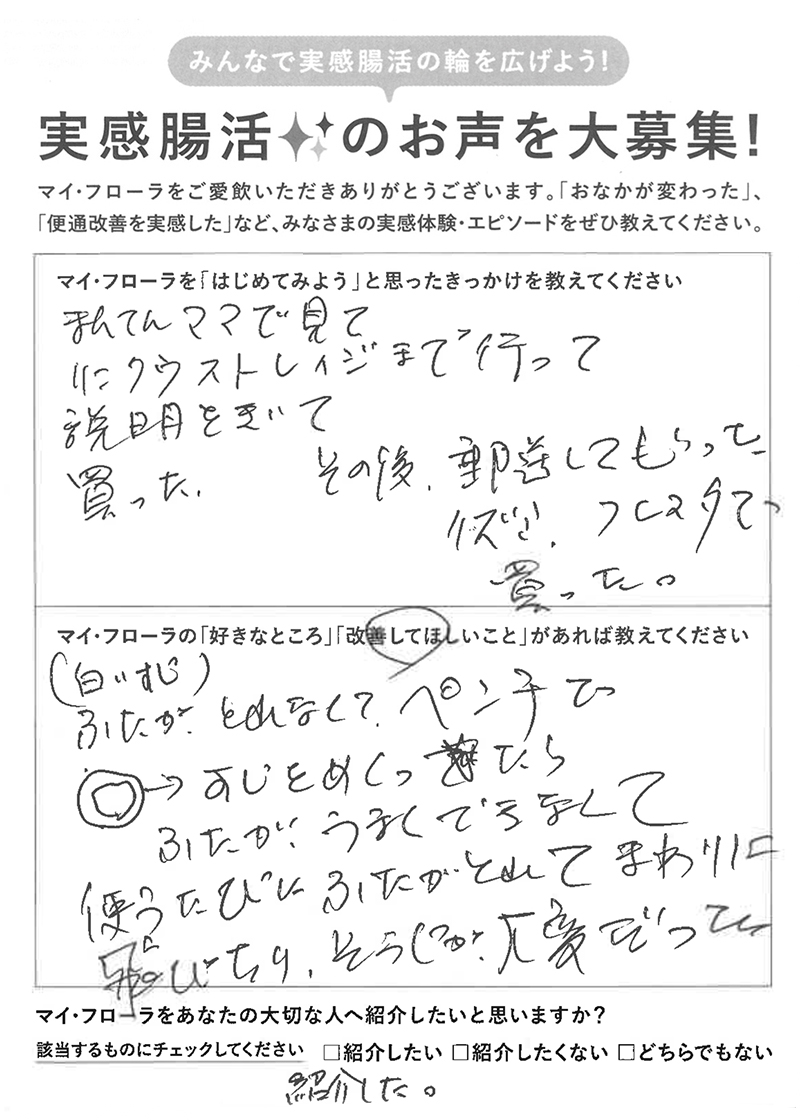 みんなで実感腸活の輪を広げよう!
実感腸活のお声を大募集!
マイ・フローラをご愛飲いただきありがとうございます。「おなかが変わった」、
「便通改善を実感した」など、みなさまの実感体験・エピソードをぜひ教えてください。
マイ・フローラを「はじめてみよう」と思ったきっかけを教えてください
まんてんママで見て
クウストレイジまで行って
説明をきいて
買った、
その後、郵送してもらった
フレスタで
買った。
マイ・フローラの「好きなところ」「改善してほしいこと」があれば教えてください
(白いすじ)
ふたが、とれなくて、ペンチで
→すじをめくったら
ふたが、うまくできなくて
使うたびにふたがとれてまわりに
飛びちり、そうじが、大変だった
マイ・フローラをあなたの大切な人へ紹介したいと思いますか?
該当するものにチェックしてください □紹介したい □紹介したくない □どちらでもない
紹介した。